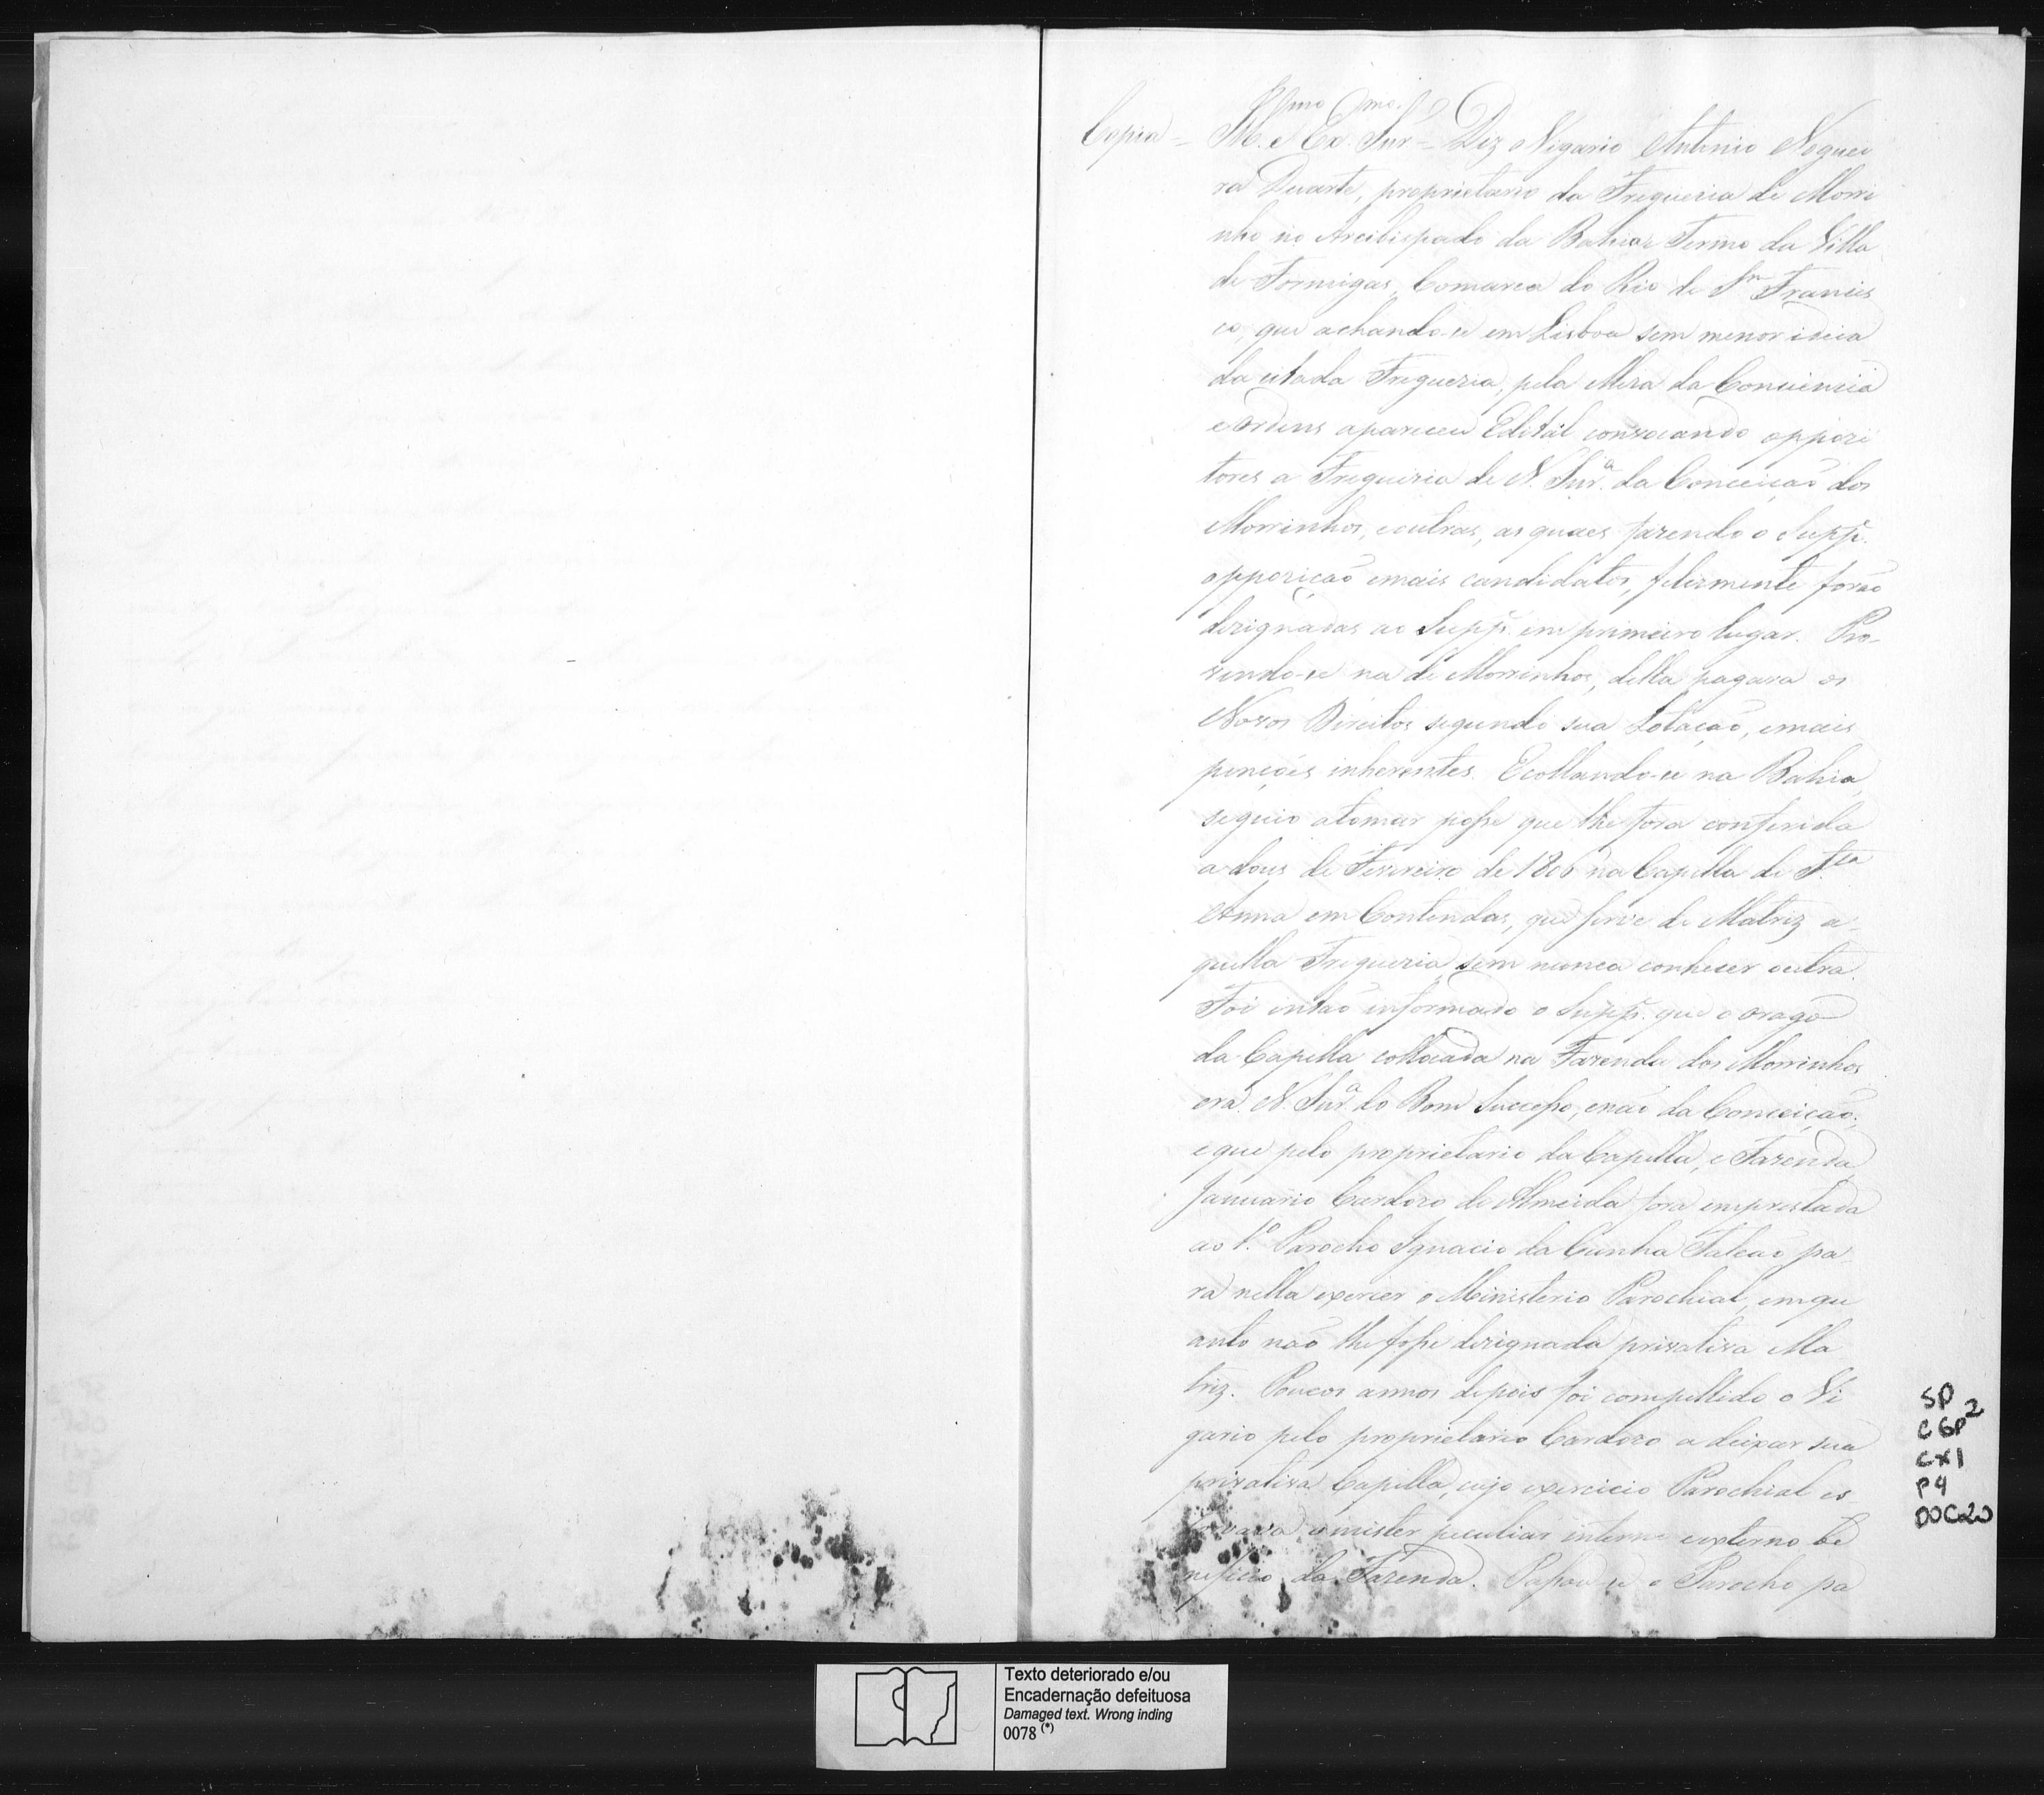 Copia = Ill.mo e Ex.mo Snr = Diz o Vigario Antonio Noguei
ra Duarte, proprietario da Freguezia de Morri
nho no Arcebispado da Bahia Termo da Villa
de Formigas, Comarca do Rio de Sm Francis
co, que achando-se em Lisboa sem menor ideia
da citada Freguezia, pela Meza da Conciencia
e Ordens apareceu Edital convocando oppozi
tores a Freguezia de N. Snr.a da Conceição dos
Morrinhos, e outras, as quaes fazendo o Supp.e
oppozição e mais candidatos, felizmente forão
dezignadas ao Supp.e em primeiro lugar. Pro-
vendo-se na de Morrinhos, della pagara os
Novos Direitos segundo sua Lotação, e mais
penções inherentes. E collando-se na Bahia,
seguio a tomar posse que lhe fora conferida
a dous de Fevereiro de 1806 na Capella de S.ta
Anna em Contendas, que serve de Matriz a-
quella Freguezia sem nunca conhecer outra.
Foi então informado o Supp.e que o orago
da Capella collocada na Fazenda dos Morrinhos
era N. Snr.a do Bom Successo, e não da Conceição;
e que pelo proprietario da Capella, e Fazenda
Januario Cardozo de Almeida fora emprestada
ao 1.o Parocho Ignacio da Cunha Falcão pa-
ra nella exercer o Ministerio Parochial, emqu
anto não lhe fosse dezignada privativa Ma
triz. Poucos annos depois foi compellido o Vi
gario pelo proprietario Cardozo a deixar sua
privativa Capella, cujo exercicio Parochial es-
torvava o mister peculiar interno e externo be
neficio da Fazenda. Passou-se o Parocho pa
SP
CGP2
CX1
P4
DOC20
Texto deteriorado e/ou
Encadernação defeituosa
Damaged text. Wrong inding
0078 (*)